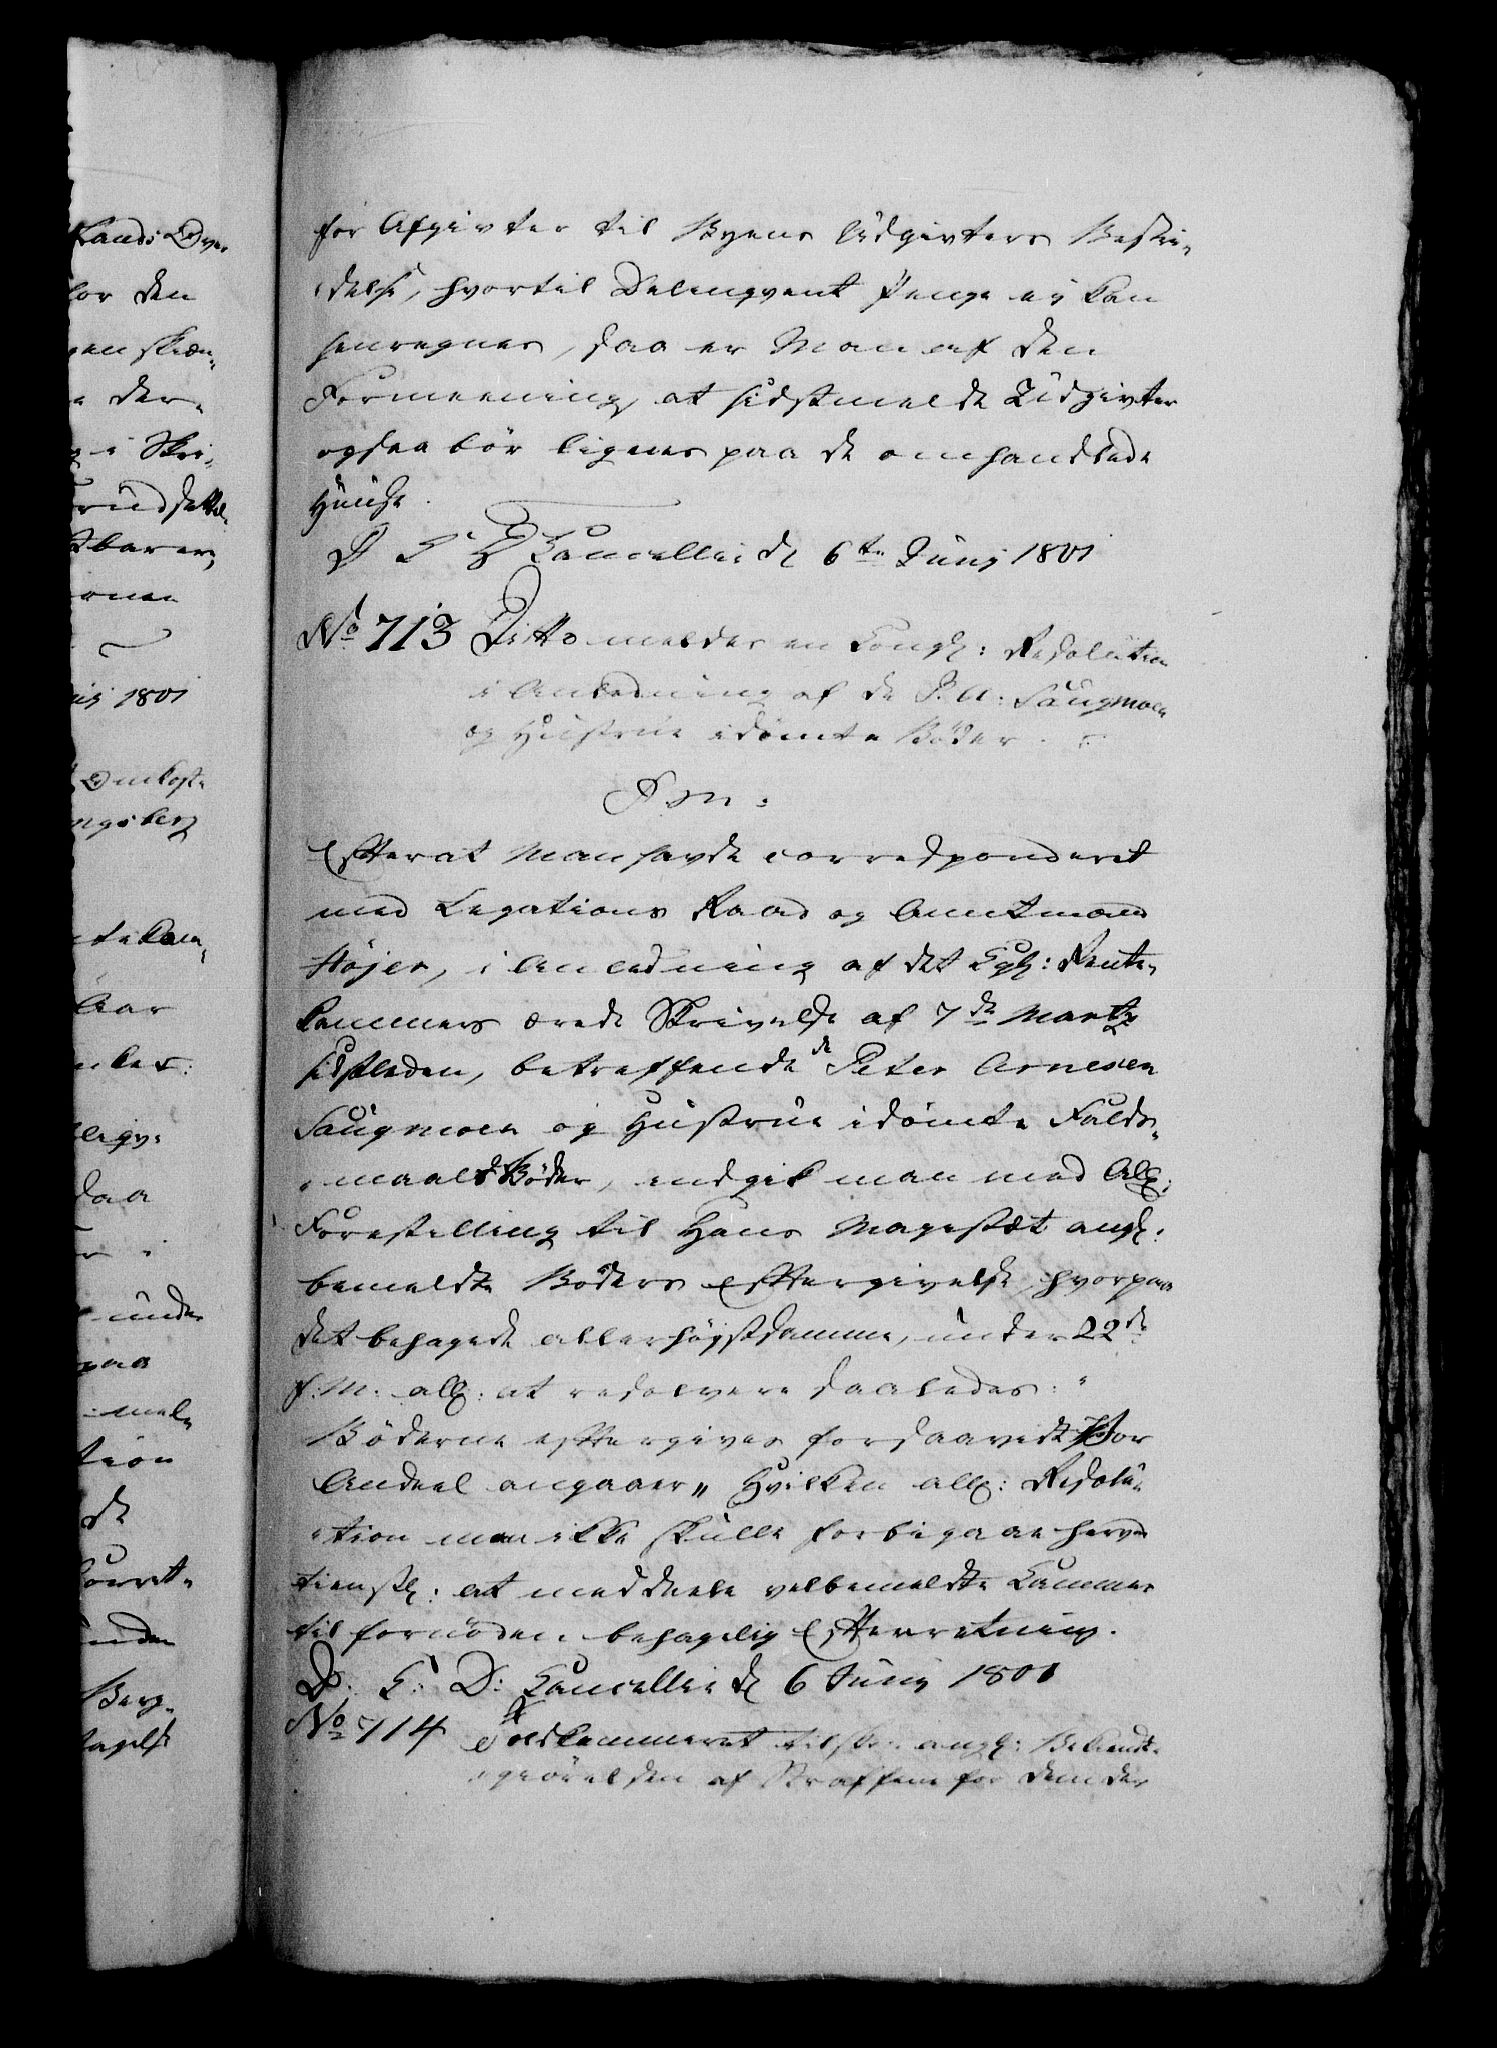 for Afgivter til Byens Udgivters Bestri-
delse, hvortil Delinqvent Penge ei kan
henregnes, saa er Man af den
Formeening, at sidstmeldte Udgivter
ogsaa bör lignes paa de omhandlede
Huuse.
D C Cancellie d 6te Junij 1801
No 713 Ditto meldes en Kongl: Resolution
i Anledning af de P: A: Haugmoen
og Hustrue idömte Böder.
P. M:
Efterat Man havde correspondert
med Legations Raad og Amtmand
Höjer, i Anledning af det Kgl: Rente-
kammers ærede Skrivelse af 7de Martz
sidstleden, betreffende de Peter Arnesen
Haugmoen og Hustrue idömte Falds-
maals Böder, indgik man med All:
Forestilling til Hans Majestæt angl:
bemeldte Böders Eftergivelse, hvorpaa
det behagede allerhöystsamme, under 22de
f: M: all: at resolvere saaledes: "
Böderne eftergives forsaavidt Vor
Andeel angaaer" Hvilken all: Resolu-
tion man ikke skulle forbigaae herved
tienstl: at meddeele velbemeldte Kammer
til fornöden behagelig Efterretning.
D: C: D: Cancellie d 6 Junij 1801
No 714 Toldkammeret tilskr: angl: Bekiendt-
giörelsen af Straffene for dem der